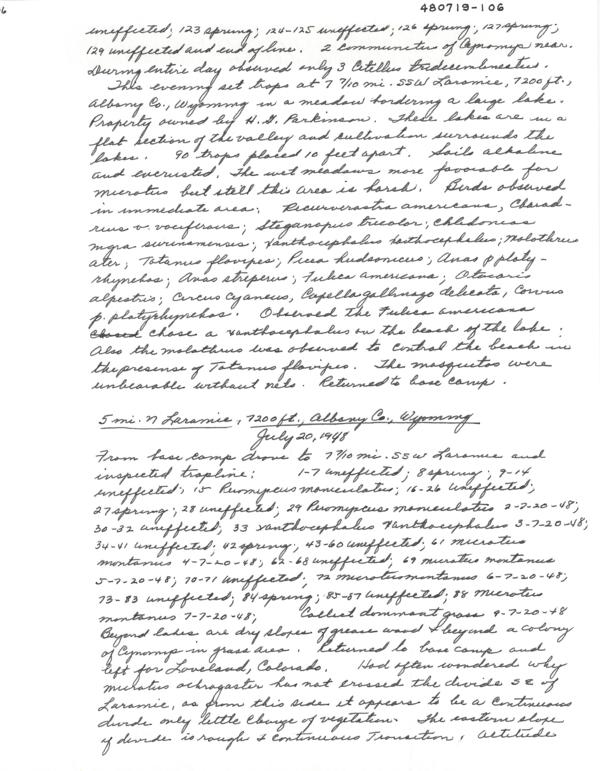 480719-106
uneffected; 123 sprung; 124-125 uneffected; 126 sprung; 127 sprung;
129 uneffected and end of line. 2 Communities of Cynomys near.
During entire day observed only 3 Citellus tridecemlineatus.
This evening set traps at 7 7/10 mi. SSW Laramie, 7200 ft.,
Albany Co., Wyoming in a meadow bordering a large lake.
Property owned by H. G. Parkinson. These lakes are in a
flat section of the valley and cultivation surrounds the
lakes. 90 traps placed 10 feet apart. Soils alkaline
and encrusted. The wet meadows more favorable for
microtus but still this area is harsh. Birds observed
in immediate area: Recurvirostra americana, Charad-
rius v. vociferous; Steganopus tricolor; Chlidonias
nigra surinamensis; Xanthocephalus xanthocephalus; Molothrus
ater; Totanus flavipes; Pica hudsonicus; Anas p platy-
rhynchos; Anas streperus; Fulica americana; Otocoris
alpestris; Circus Cyaneus, Capella gallinago delicata, Corvus
p. platyrhynchos. Observed the Fulica americana
chase a xanthocephalus on the beach of the lake.
Also the molothrus was observed to control the beach in
the presense of Totanus flavipes. The mosquitos were
unbearable without nets. Returned to base camp.
5 mi. N Laramie, 7200 ft., Albany Co., Wyoming
July 20, 1948
From base camp drove to 7 7/10 mi. SSW Laramie and
inspected trapline: 1-7 uneffected; 8 sprung; 9-14
uneffected; 15 Peromyscus maniculatus; 16-26 Uneffected;
27 sprung; 28 uneffected; 29 Peromyscus maniculatus 2-7-20-48;
30-32 uneffected; 33 Xanthocephalus Xanthocephalus 3-7-20-48;
34-41 uneffected; 42 sprung; 43-60 uneffected; 61 microtus
montanus 4-7-20-48; 62-68 uneffected; 69 microtus montanus
5-7-20-48; 70-71 uneffected; 72 microtus montanus 6-7-20-48;
73-83 uneffected; 84 sprung; 85-87 Uneffected; 88 Microtus
montanus 7-7-20-48; Collect dominant grass 9-7-20-48
Beyond lakes are dry slopes of grease wood & beyond a colony
of Cynomys in grass area. Returned to base camp and
left for Loveland, Colorado. Had often wondered why
microtus ochrogaster has not crossed the divide SE of
Laramie, as from this side it appears to be a Continuous
divide only little Change of vegetation. The eastern slope
of divide is rough & continuous Transition, altitude